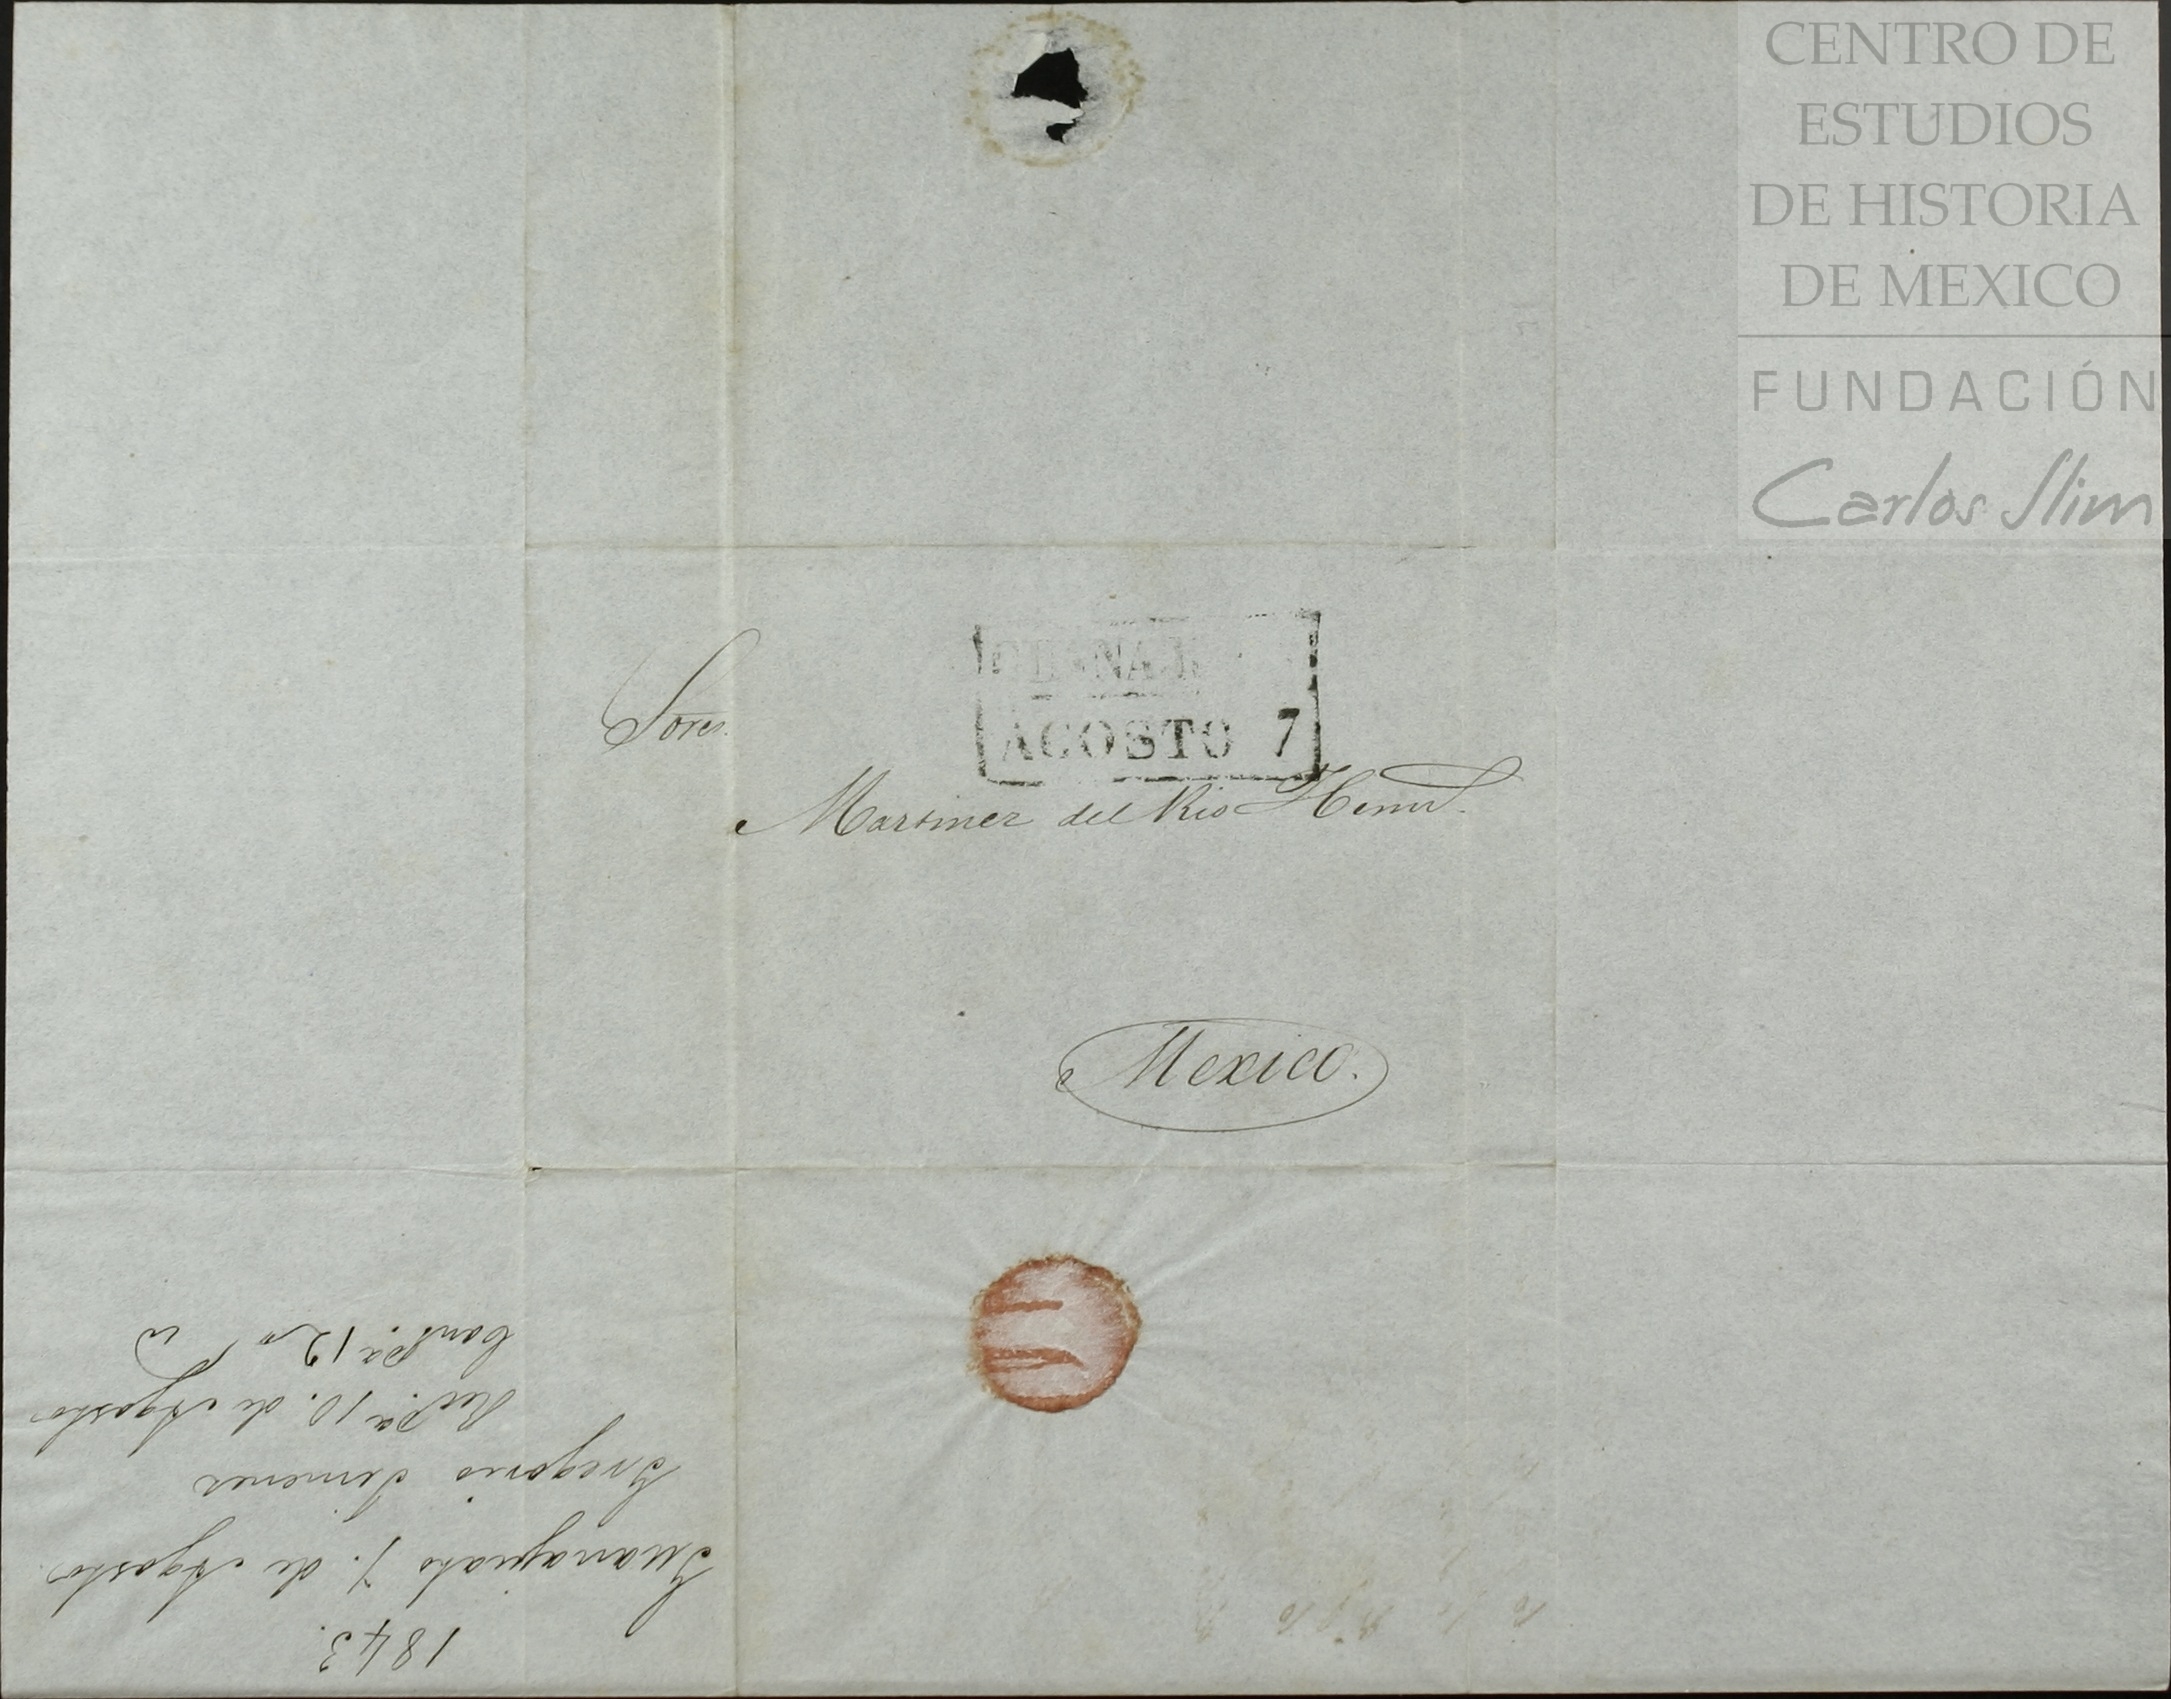 CENTRO DE
ESTUDIOS
DE HISTORIA
DE MEXICO
FUNDACIÓN
Carlos Slim
AGOSTO 7
Sores.
Martinez del Rio Herms.
Mexico.
1843.
Guanajuato 7. de Agosto
Gregorio Jimenez
Recd. a 10. de Agosto
Cont. a 12 " "